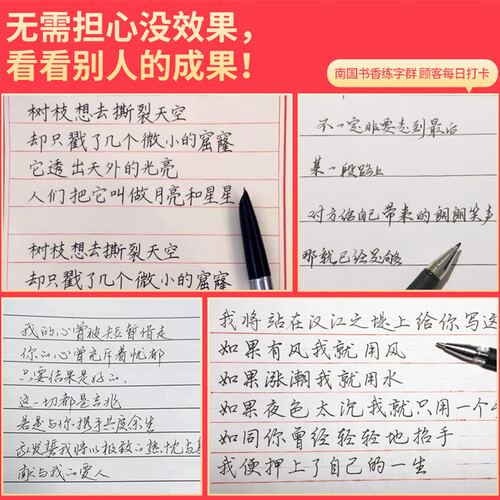 无需担心没效果，
看看别人的成果！
南国书香练字群 顾客每日打卡
树枝想去撕裂天空
却只戳了几个微小的窟窿
它透出天外的光亮
人们把它叫做月亮和星星
树枝想去撕裂天空
却只戳了几个微小的窟窿
不一定非要走到最后
某一段路上
对方给自己带来的朗朗笑声
那就已经足够
我的心曾被短暂借走
你的心曾充斥着忧郁
只要结果是好的
这一切都是吉兆
若是与你携手共度余生
我将以极致的热忱与
献与我的爱人
我将站在汉江之堤上给你写这
如果有风我就用风
如果涨潮我就用水
如果夜色太沉我就只用一个
如同你曾经轻轻地招手
我便押上了自己的一生